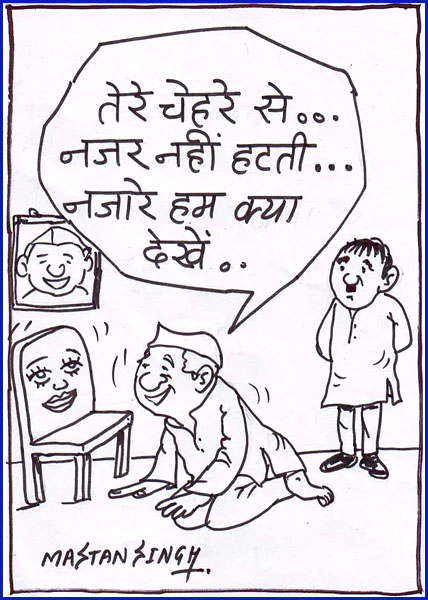 तेरे चेहरे से...
नजर नहीं हटती...
नजारे हम क्या
देखें..
MASTAN SINGH.